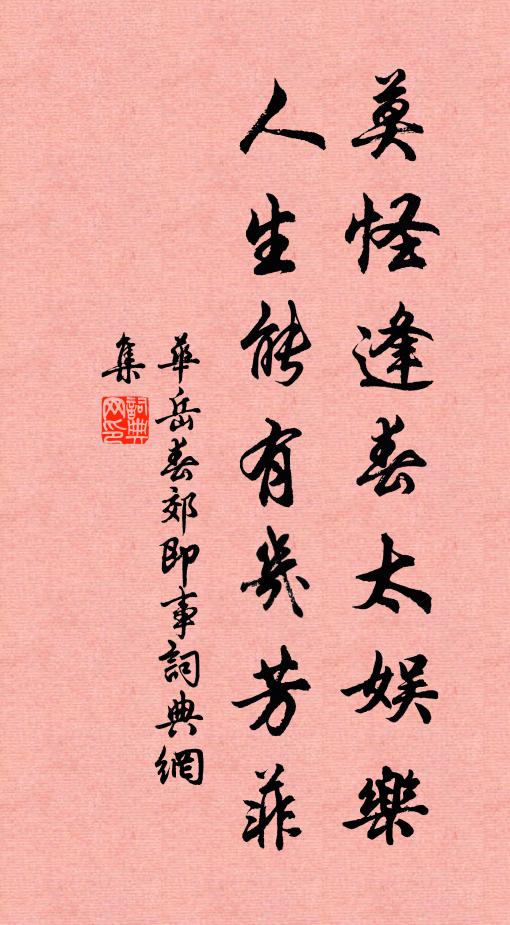 莫怪逢春太娱樂
人生能有幾芳菲
華岳春郊即事詞典網
集
詞典網印